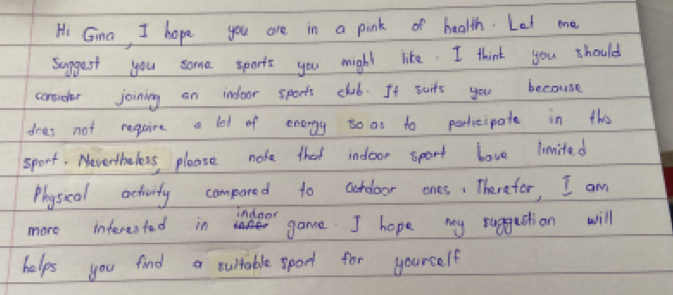 Hi Gina, I hope you are in a pink of health. Let me
suggest you some sports you might like. I think you should
consider joining an indoor sports club. It suits you because
does not require a lot of energy so as to participate in this
sport. Nevertheless, please note that indoor sport have limited
Physical activity compared to outdoor ones. Therefor, I am
more interested in indoor game. I hope my suggestion will
helps you find a suitable sport for yourself